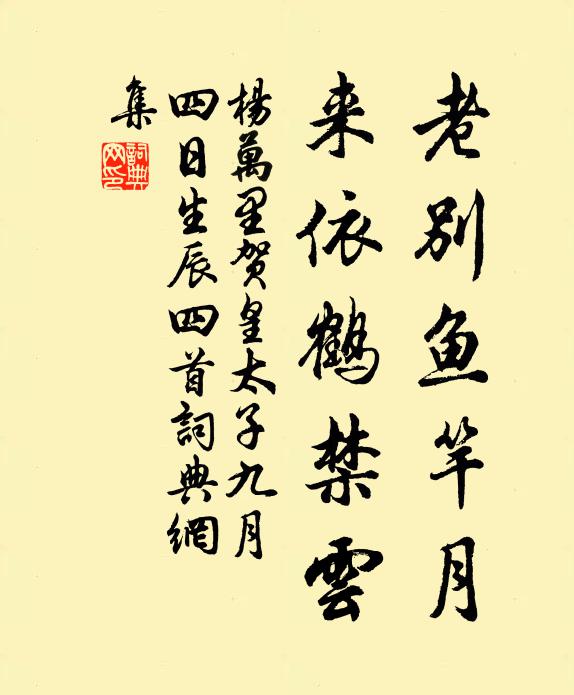 老别鱼竿月
来依鶴禁雲
楊萬里賀皇太子九月
四日生辰四首詞典網
集
詞典網印